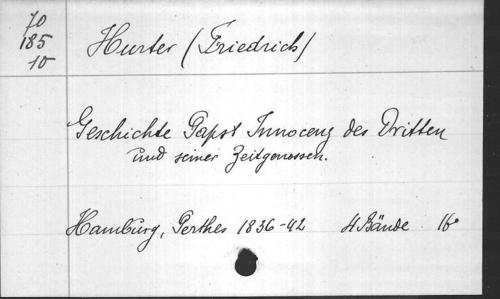 70
185
10
Hurter (Friedrich)
Geschichte Papst Innocenz des Dritten
und seiner Zeitgenossen.
Hamburg, Perthes 1836-42 4 Bände